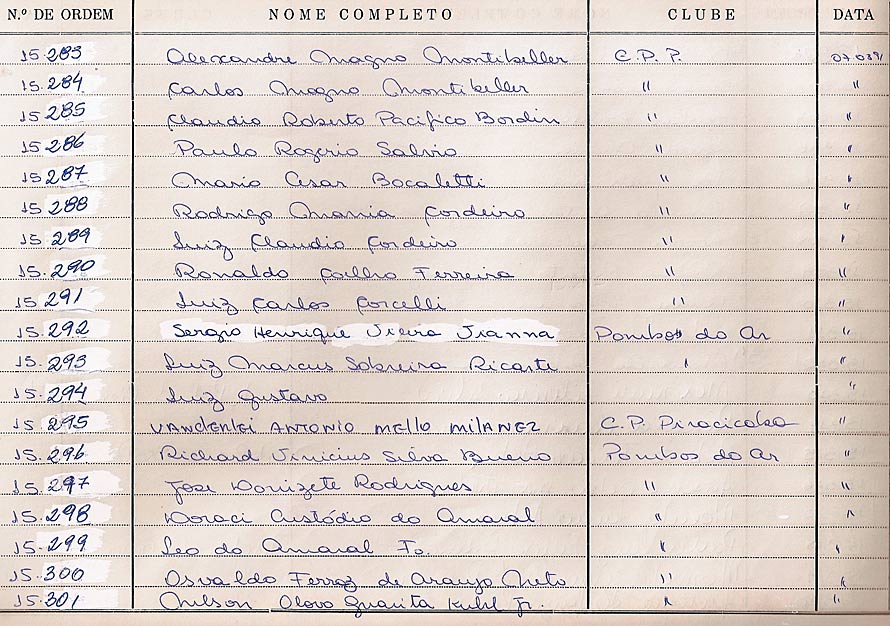 N.º DE ORDEM NOME COMPLETO CLUBE DATA
15.283 Alexandre Magno Montibeller C.P.P. 07.0391
15.284 Carlos Magno Montibeller " "
15.285 Claudio Roberto Pacifico Bordin " "
15.286 Paulo Rogerio Salvio " "
15.287 Mario Cesar Bocaletti " "
15.288 Rodrigo Mania Cordeiro " "
15.289 Luiz Claudio Cordeiro " "
15.290 Ronaldo Coelho Ferreira " "
15.291 Luiz Carlos Corcelli " "
15.292 Sergio Henrique Vieira Vianna Pombos do Ar "
15.293 Luiz Marcus Sobreira Ricarte " "
15.294 Luiz Gustavo "
15.295 VANDERLEI ANTONIO MELLO MILANEZ C.P. Piracicaba "
15.296 Richard Vinicius Silva Bueno Pombos do Ar "
15.297 Jose Donizete Rodrigues " "
15.298 Doraci Custódio do Amaral " "
15.299 Leo do Amaral Fo. " "
15.300 Osvaldo Ferraz de Araujo Neto " "
15.301 Nilson Olavo Kuhl Jr. " "